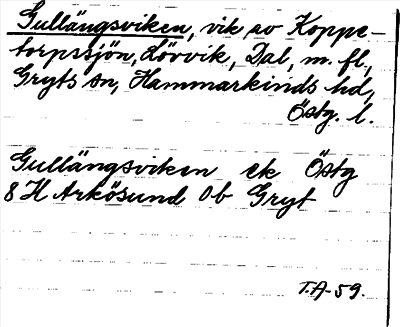 Gullängsviken, vik av Koppe-
torpssjön, Lövvik, Dal, m. fl.,
Gryts sn, Hammarkinds hd,
Östg. l.
Gullängsviken ek Östg
8 H Arkösund 0b Gryt
T.A-59.